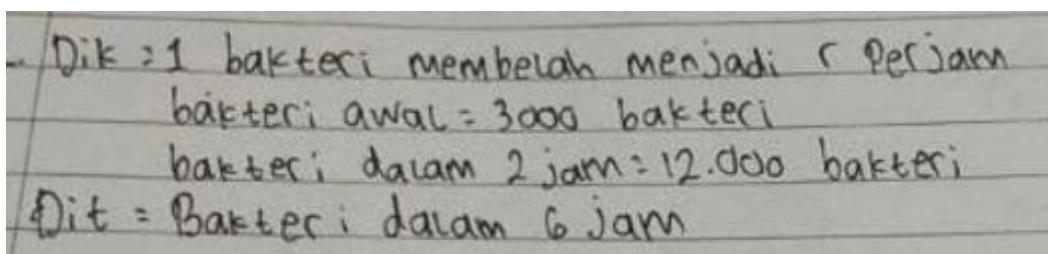 Dik : 1 bakteri membelah menjadi r Perjam
bakteri awal = 3000 bakteri
bakteri dalam 2 jam = 12.000 bakteri
Dit = Bakteri dalam 6 jam